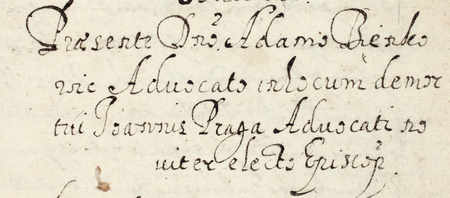 Præsente Dno. Adamo Bienko
wic Advocato in locum demor
tui Joannis Praga Advocati no
viter electo Episcop.